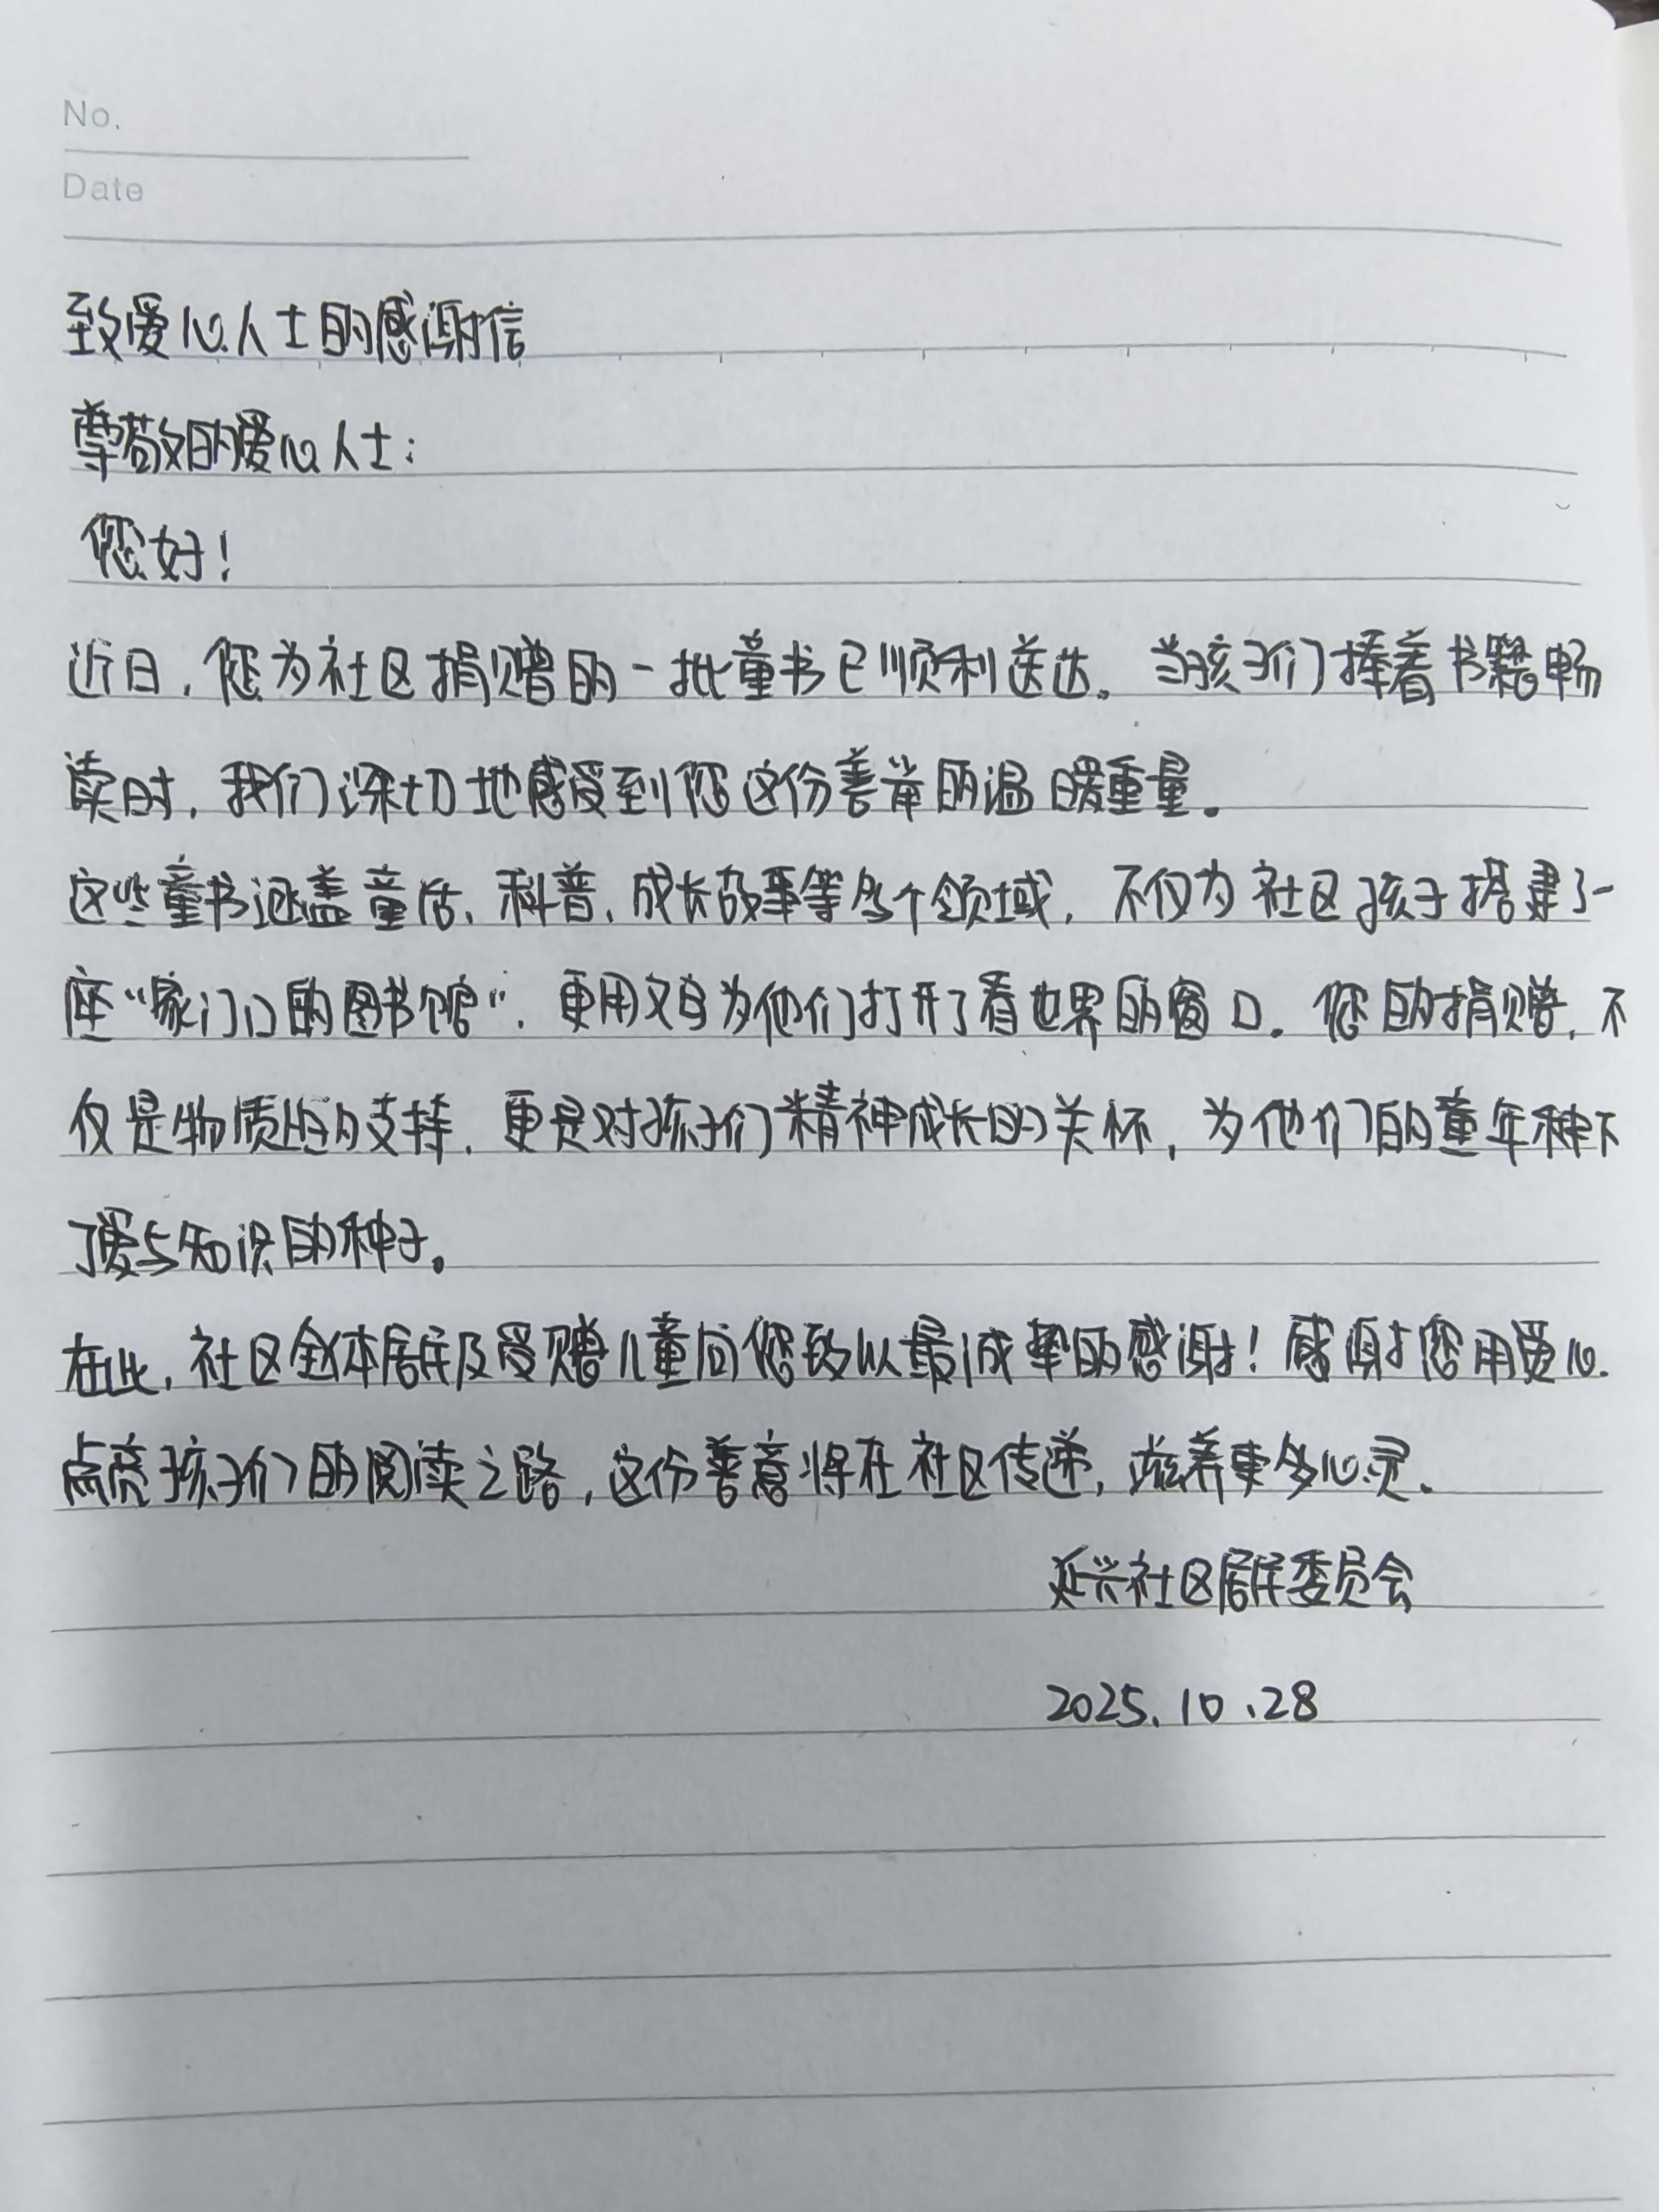 No.
Date
致爱心人士的感谢信
尊敬的爱心人士：
您好！
近日，您为社区捐赠的一批童书已顺利送达。当孩子们捧着书籍畅
读时，我们深切地感受到您这份善举的温暖重量。
这些童书涵盖童话、科普、成长故事等多个领域，不仅为社区孩子搭建了一
座“家门口的图书馆”，更用文字为他们打开了看世界的窗口。您的捐赠，不
仅是物质上的支持，更是对孩子们精神成长的关怀，为他们的童年种下
了爱与知识的种子。
在此，社区全体居民及受赠儿童向您致以最诚挚的感谢！感谢您用爱心
点亮孩子们的阅读之路，这份善意将在社区传递，滋养更多心灵。
延兴社区居民委员会
2025.10.28